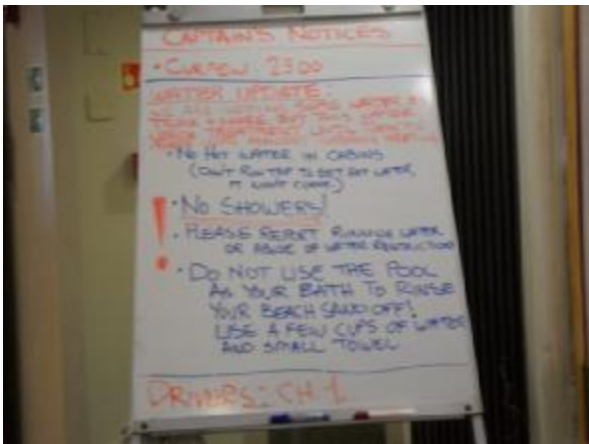 CAPTAIN'S NOTICES
• CURFEW: 2300
WATER UPDATE:
WATER
BUT THIS WATER
• NO HOT WATER IN CABINS
(DON'T RUN TAP TO GET HOT WATER,
IT WON'T COME)
! • NO SHOWERS!
• PLEASE REPORT RUNNING WATER
OR ABUSE OF WATER RESTRICTION
• DO NOT USE THE POOL
AS YOUR BATH TO RINSE
YOUR BEACH SAND OFF!
USE A FEW CUPS OF WATER
AND SMALL TOWEL
DRIVERS: CH 1